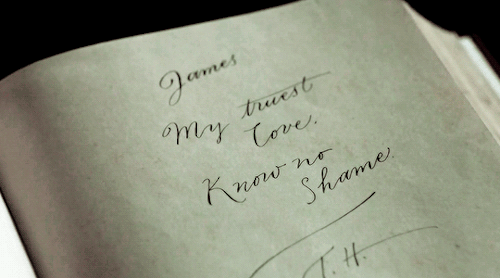 James
My truest
Love.
Know no
Shame.
T.H.